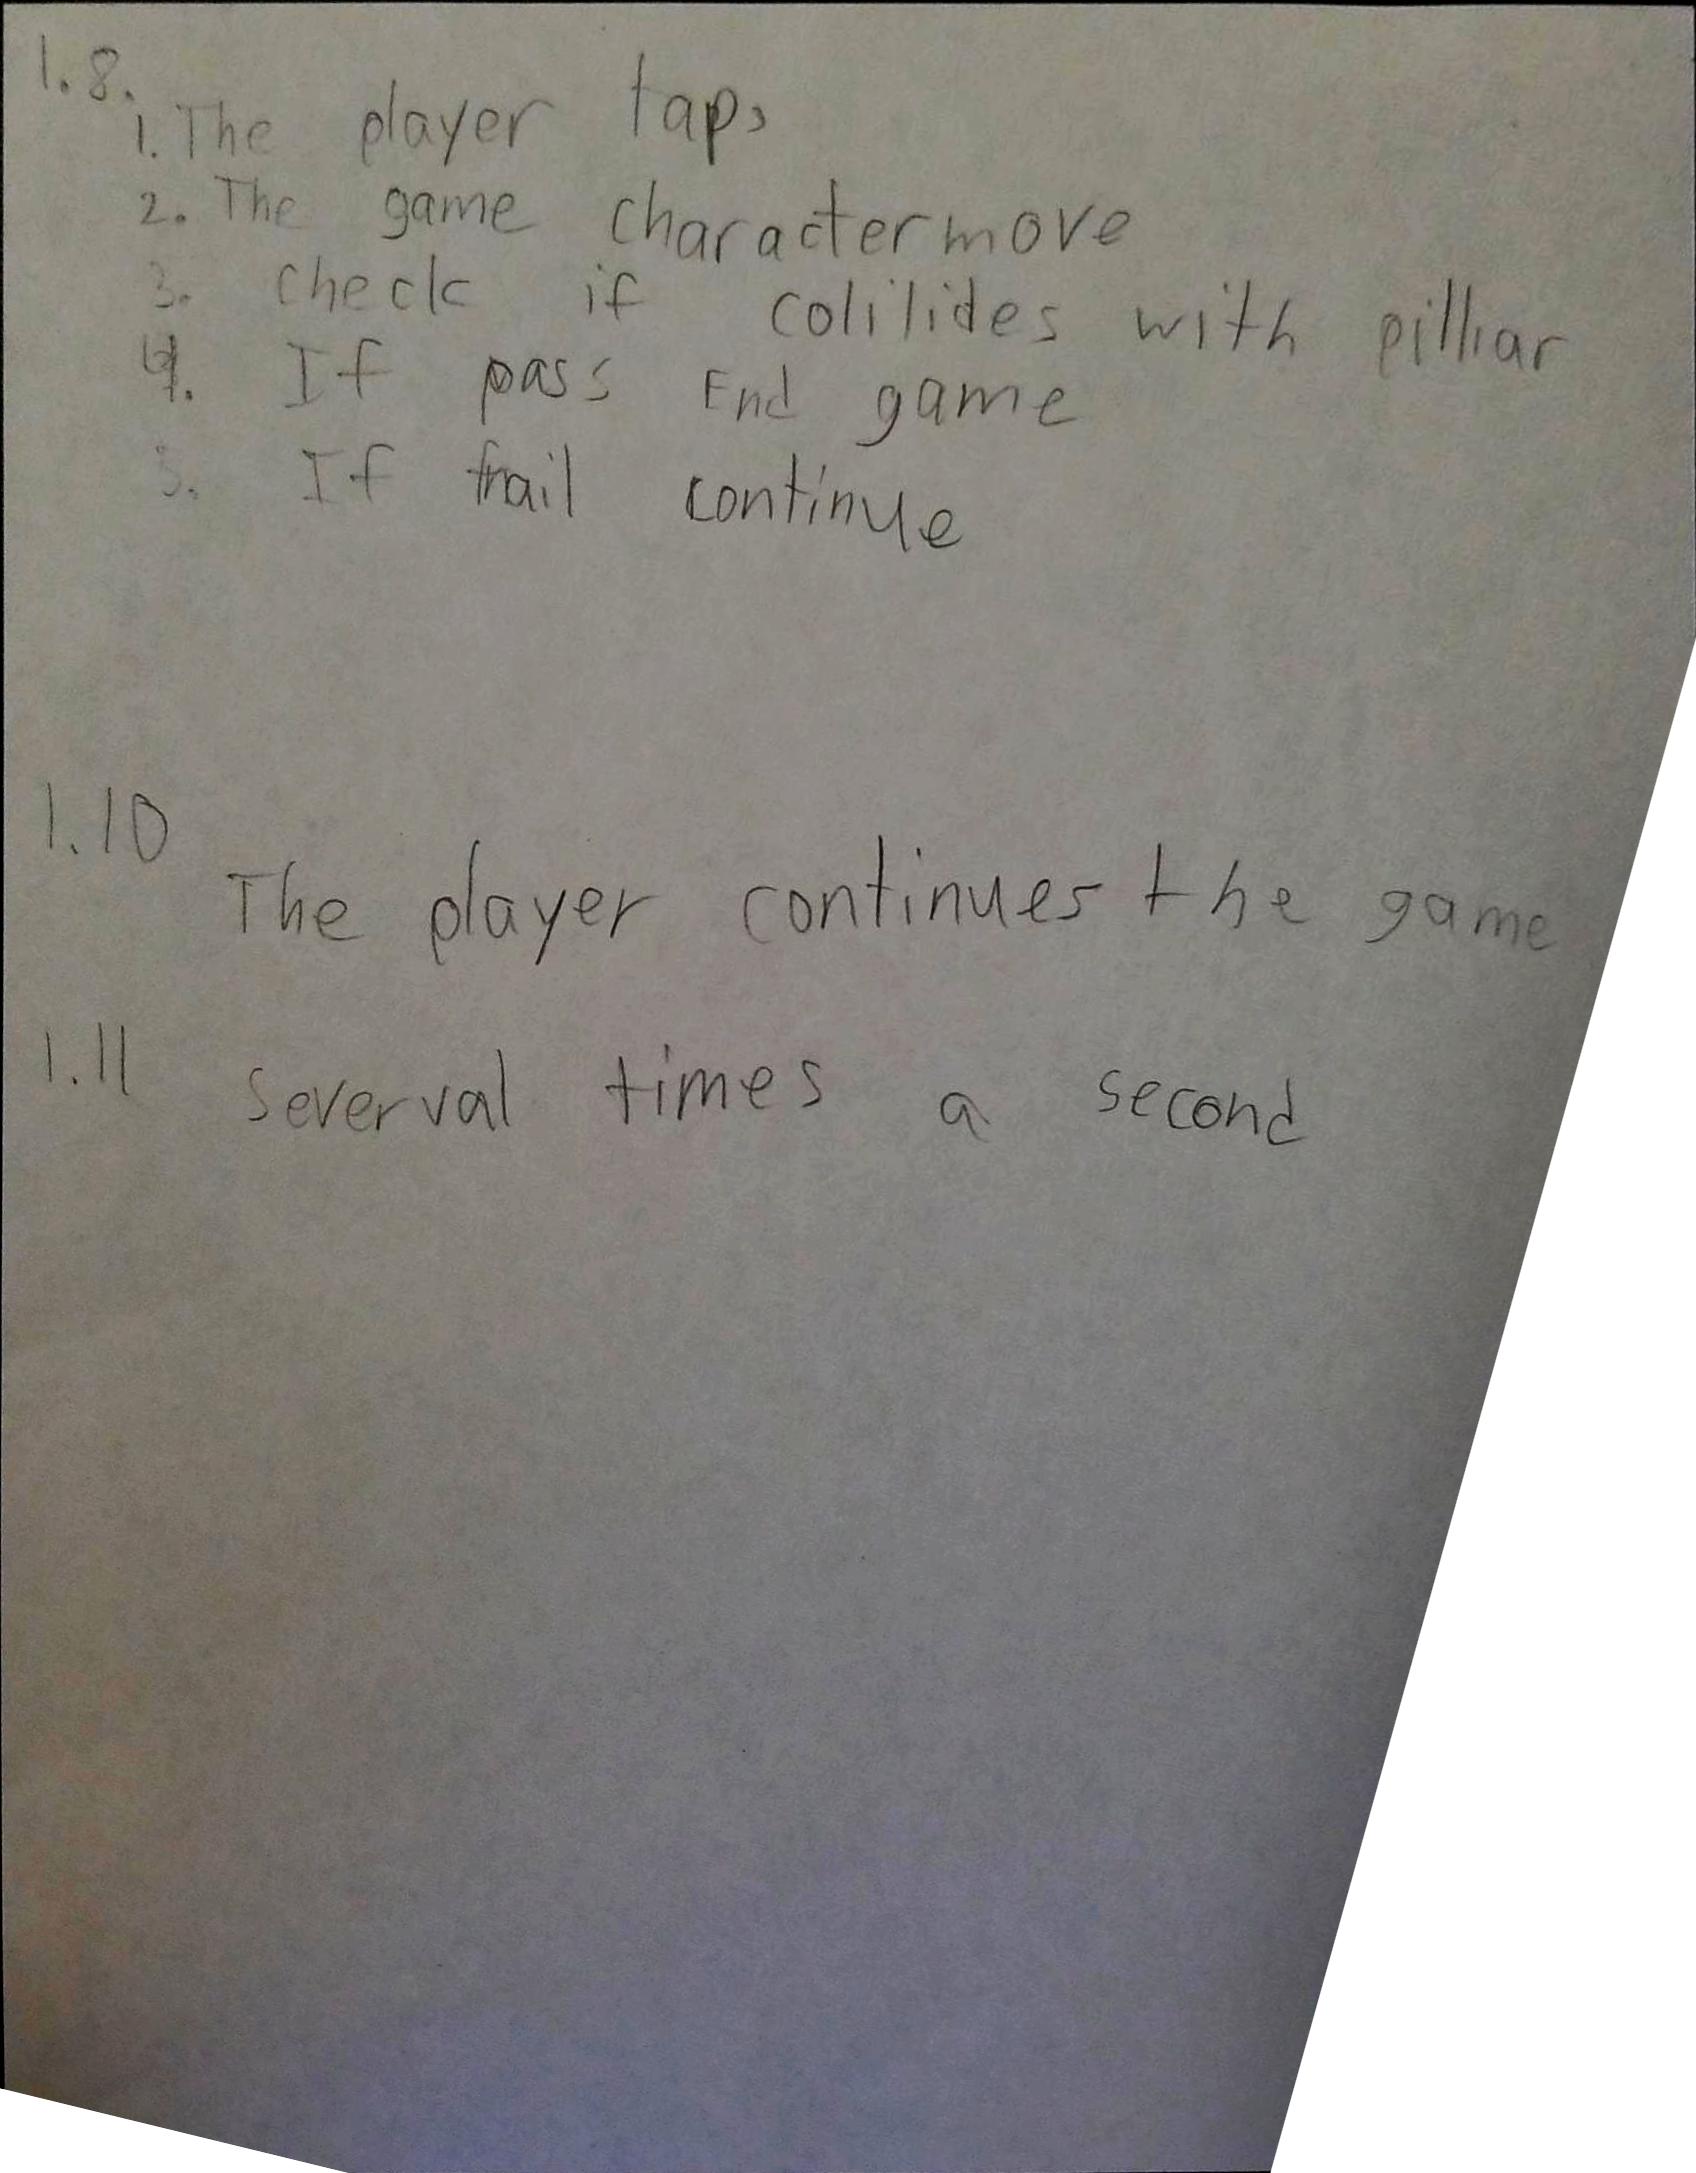 1.8.
1. The player taps
2. The game character move
3. check if colilides with pilliar
4. If pass End game
5. If frail continue
1.10
The player continues the game
1.11 Severval times a second